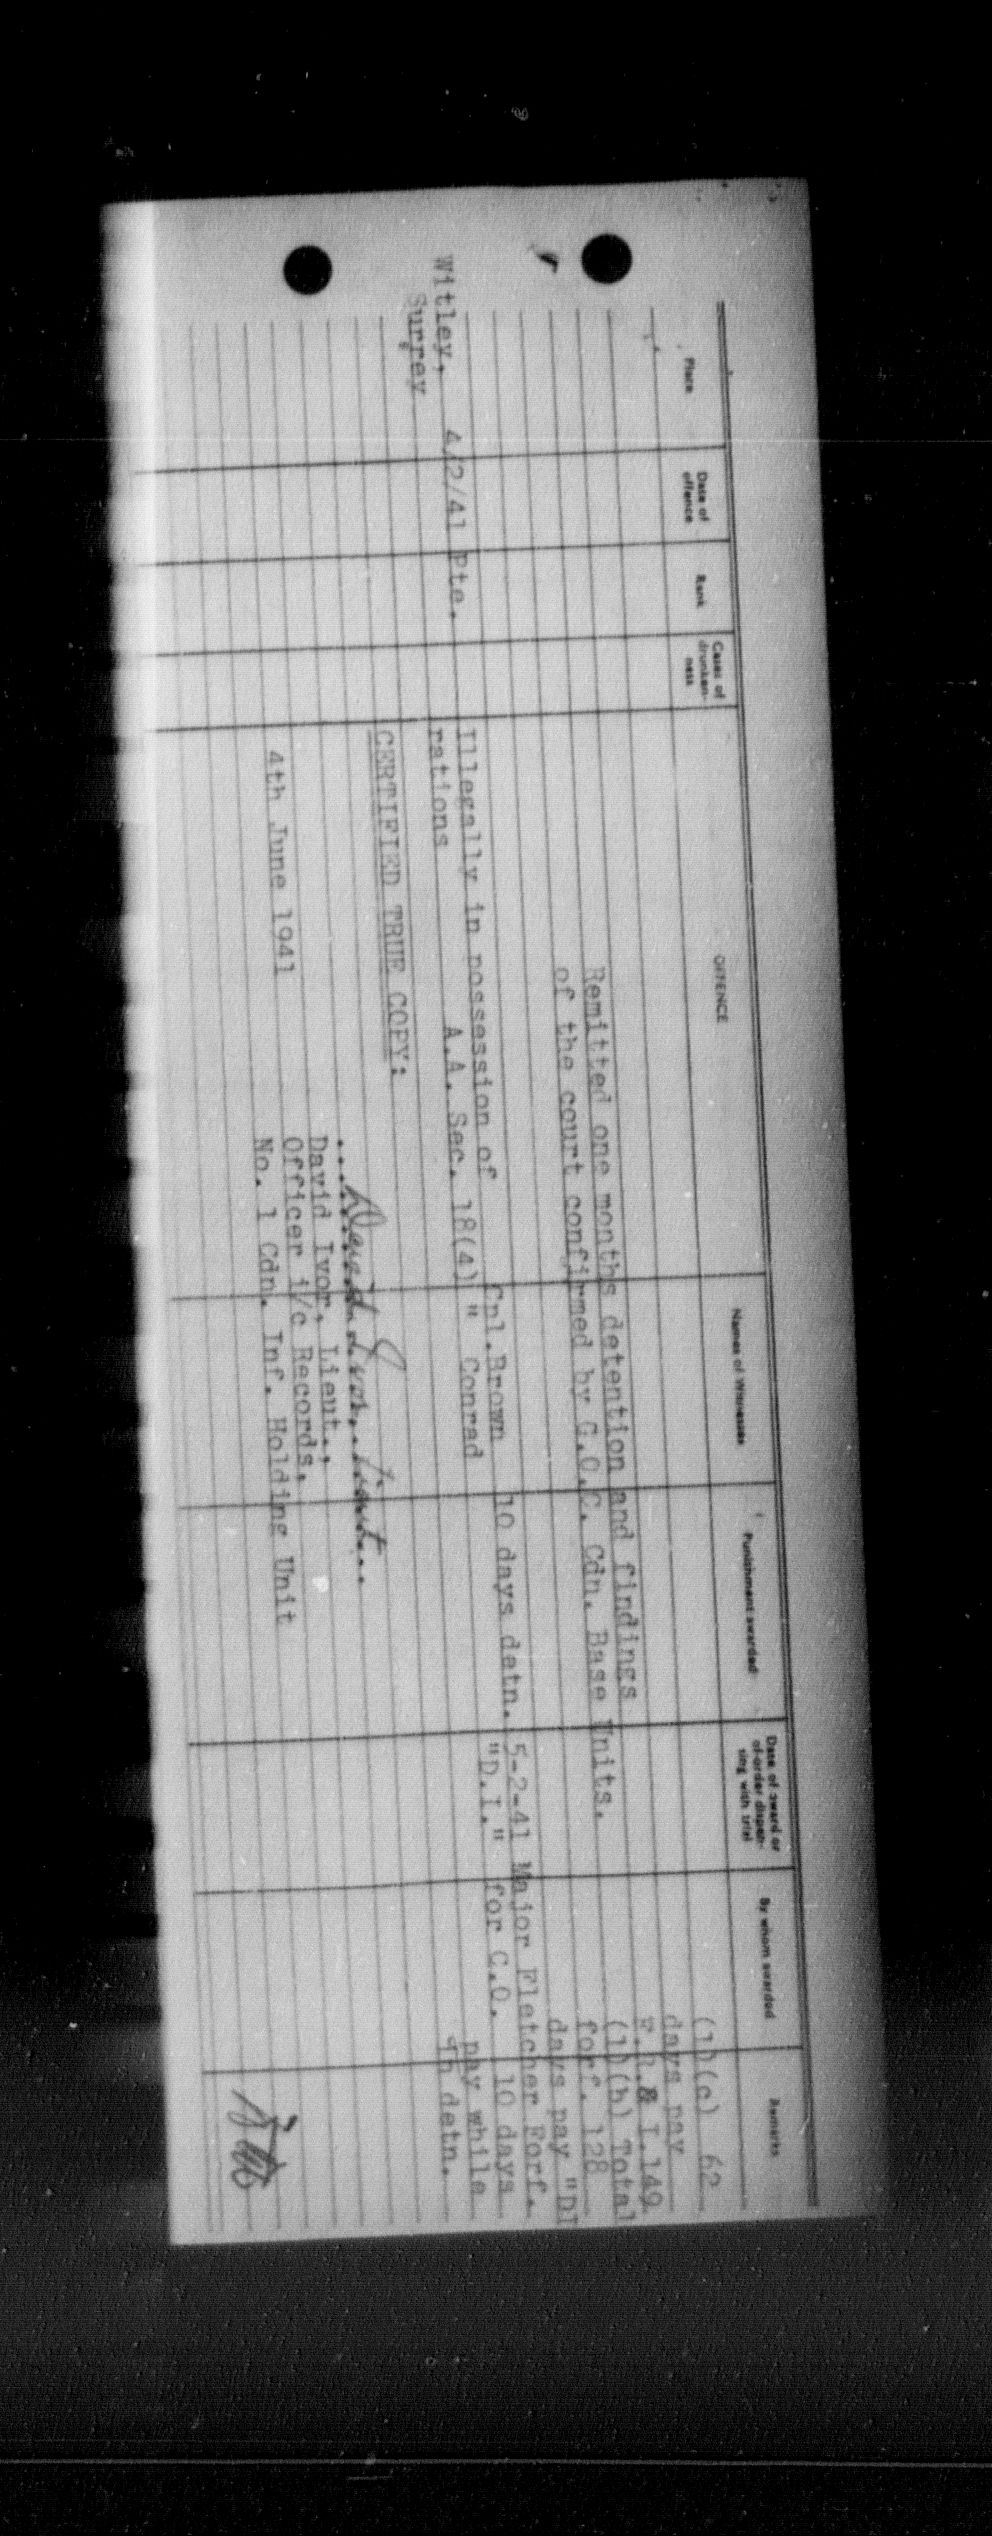 Place Date of offence Rank Cases of drunken-ness OFFENCE Names of Witnesses Punishment awarded Date of award or of order dispen-sing with trial By whom awarded Remarks
(1)(c) 62
days pay
F.R.& I.149
Remitted one months detention and findings (1)(b) Total
of the court confirmed by G.O.C. Cdn. Base Units. forf. 128
days pay "DI
Cpl.Brown 10 days detn. 5-2-41 Major Fletcher Forf.
Witley, 4/2/41 Pte. Illegally in possession of " Conrad "D.I." for C.O. 10 days
Surrey rations A.A. Sec. 18(4) pay while
in detn.
CERTIFIED TRUE COPY:
David Ivor, Lieut.
David Ivor, Lieut.,
Officer i/c Records,
4th June 1941 No. 1 Cdn. Inf. Holding Unit